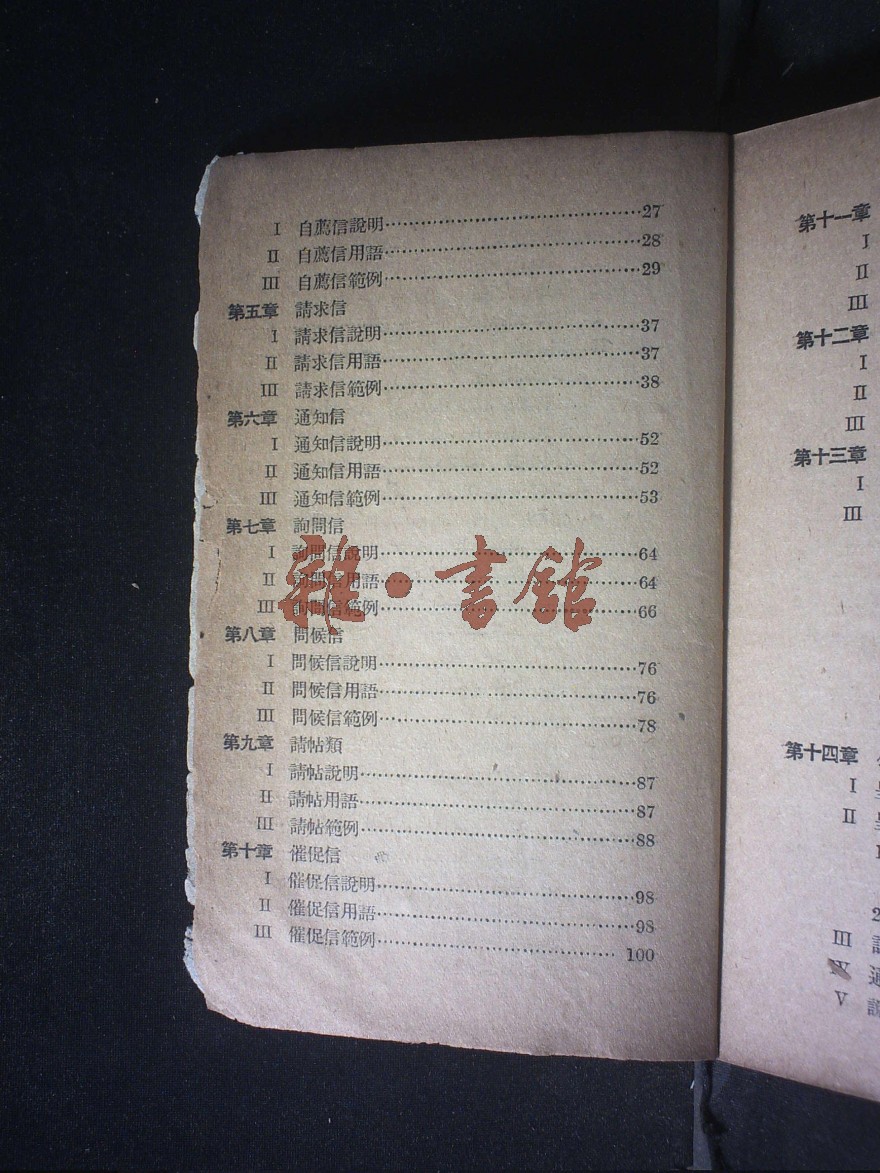 I 自薦信說明 27
II 自薦信用語 28
III 自薦信範例 29
第五章 請求信
I 請求信說明 37
II 請求信用語 37
III 請求信範例 38
第六章 通知信
I 通知信說明 52
II 通知信用語 52
III 通知信範例 53
第七章 詢問信
I 詢問信說明 64
II 詢問信用語 64
III 詢問信範例 66
第八章 問候信
I 問候信說明 76
II 問候信用語 76
III 問候信範例 78
第九章 請帖類
I 請帖說明 87
II 請帖用語 87
III 請帖範例 88
第十章 催促信
I 催促信說明 98
II 催促信用語 98
III 催促信範例 100
雜·書館
第十一章
I
II
III
第十二章
I
II
III
第十三章
I
III
第十四章
I
II
2
III
通
V